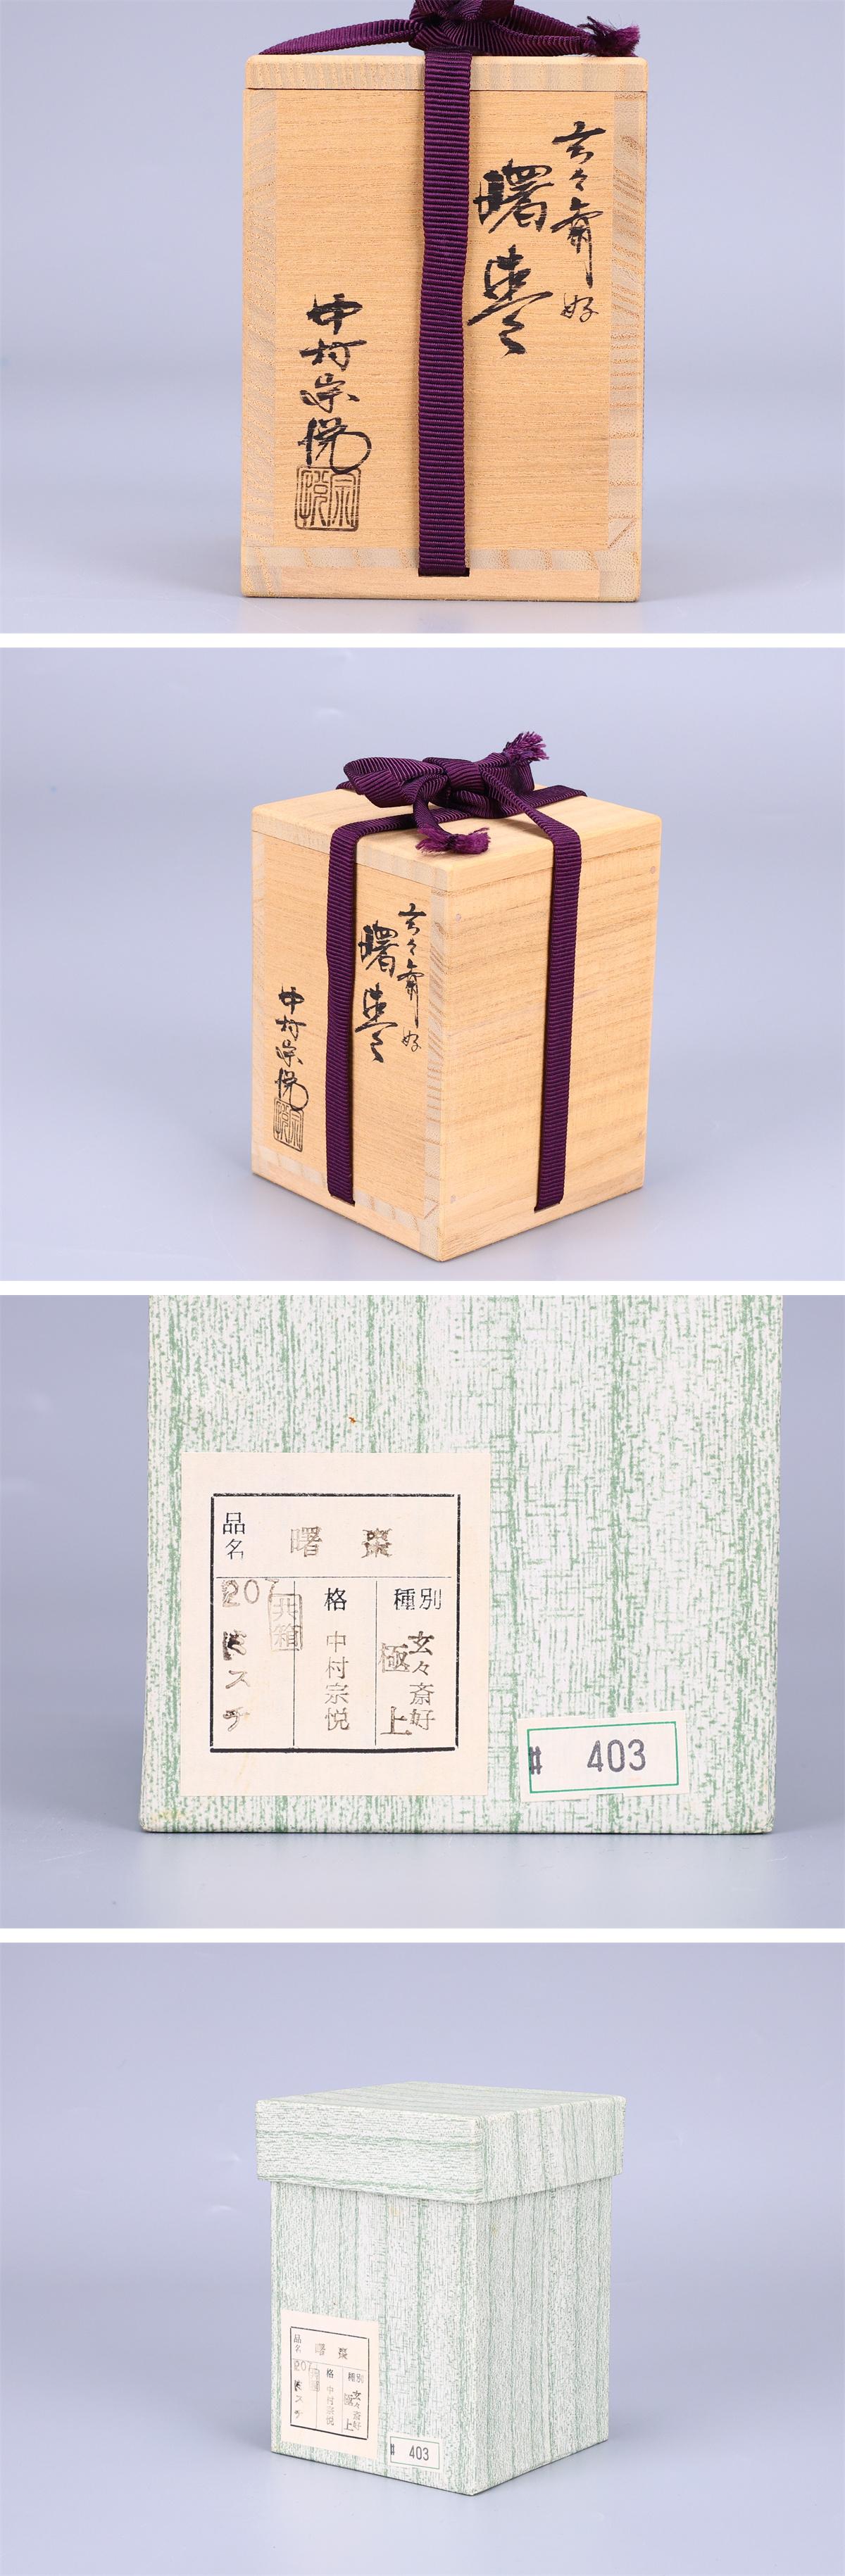 玄々斎好
曙棗
中村宗悦
宗悦
玄々斎好
曙棗
中村宗悦
宗悦
品名
曙 棗
種別
玄々斎好
極上
格
中村宗悦
共箱
207
スチ
# 403
品名
曙 棗
種別
玄々斎好
極上
格
中村宗悦
207
スチ
# 403